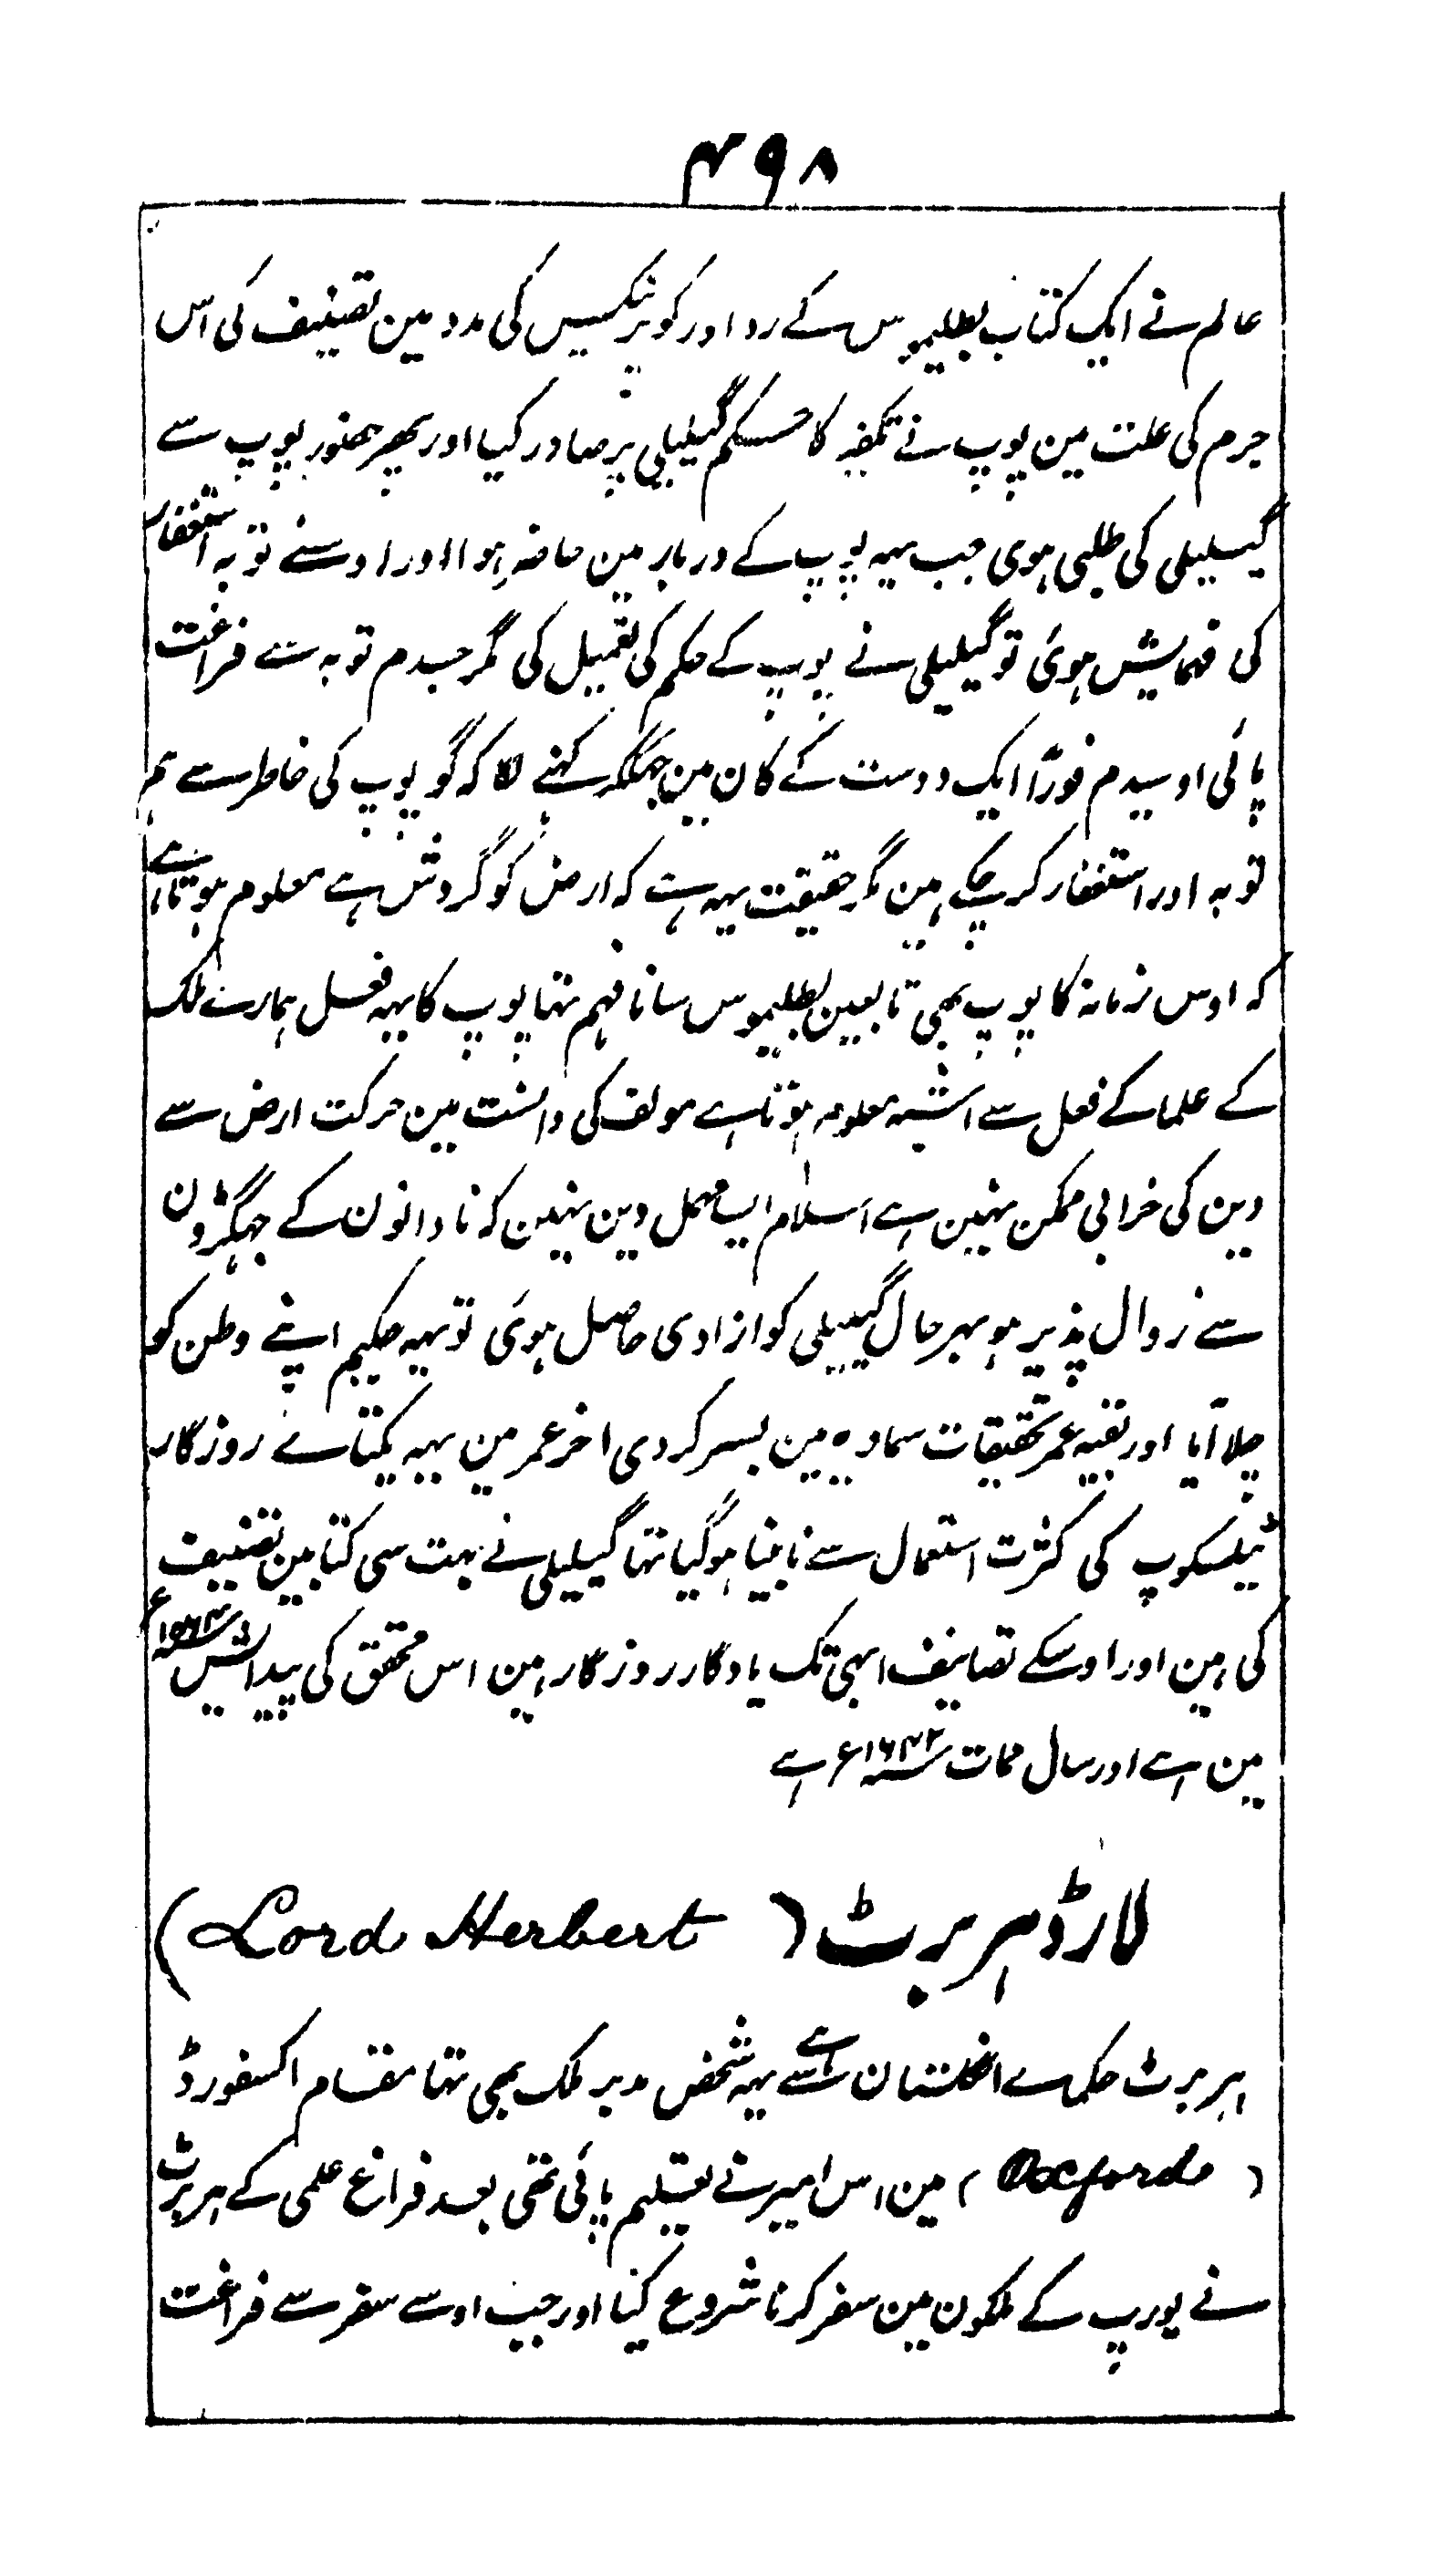 ۴۹۸
عالم نے ایک کتاب بطلیموس کے رد اور کوپرنکیس کی مدد مین تصنیف کی اس
جرم کی علت مین پوپ نے تکفیر کا حکم گیلیلی پر صادر کیا اور پھر حضور پوپ سے
گیلیلی کی طلبی ہوی جب یہہ پوپ کے دربار مین حاضر ہوا اور اوسنے توبہ استغفار
کی فہمایش ہوئی تو گیلیلی نے پوپ کے حکم کی تعمیل کی مگر جسدم توبہ سے فراغت
پائی اوسیدم فوراً ایک دوست کے کان مین جھکگر کہنے لگا کہ گو پوپ کی خاطر سے ہم
توبہ اور استغفار کر چکے ہین مگر حقیقت یہہ ہے کہ ارض کو گردش ہے معلوم ہوتا ہے
کہ اوس زمانہ کا پوپ بھی تابعین بطلیموس سا نافہم تہا پوپ کا یہہ فعل ہمارے ملک
کے علما کے فعل سے اشبہ معلوم ہوتا ہے مولف کی دانست مین حرکت ارض سے
دین کی خرابی ممکن نہین ہے اسلام ایسا مہمل دین نہین کہ نادانون کے جہگڑون
سے زوال پذیر ہو بہر حال گیلیلی کو ازادی حاصل ہوئی تو یہہ حکیم اپنے وطن کو
چلا آیا اور بقیہ عمر تحقیقات سماویہ مین بسر کر دی اخر عمر مین یہہ یکتاے روزگار
ٹیلسکوپ کی کثرت استعمال سے نابینا ہوگیا تہا گیلیلی نے بہت سی کتابین تصنیف
کی ہین اور اوسکے تصانیف ابہی تک یادگار روزگار ہین اس محقق کی پیدایش ۱۵۶۴ء
مین ہے اور سال ممات ۱۶۴۲ء ہے
لارڈ ہربرٹ (Lord Herbert)
ہربرٹ حکماے انگلستان سے ہے یہہ شخص مدبر ملک بھی تہا مقام اکسفورڈ
(Oxford) مین اس امیر نے تعلیم پائی تھی بعد فراغ علمی کے ہربرٹ
نے یورپ کے ملکون مین سفر کرنا شروع کیا اور جب اوسے سفر سے فراغت